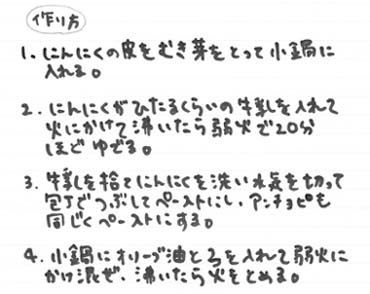 作り方
1. にんにくの皮をむき芽をとって小鍋に
入れる。
2. にんにくがひたるくらいの牛乳を入れて
火にかけて沸いたら弱火で20分
ほどゆでる。
3. 牛乳を捨てにんにくを洗い水気を切って
包丁でつぶしてペーストにし、アンチョビも
同じくペーストにする。
4. 小鍋にオリーブ油と3を入れて弱火に
かけ混ぜ、沸いたら火をとめる。